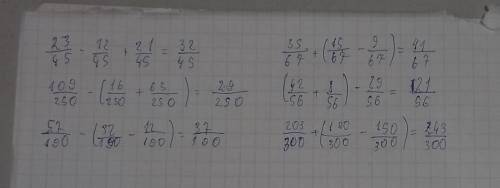 23/45 - 12/45 + 21/45 = 32/45
109/250 - (16/250 + 65/250) = 28/250
57/100 - (32/100 - 12/100) = 37/100
35/67 + (15/67 - 9/67) = 41/67
(42/56 + 8/56) - 29/56 = 21/56
203/300 + (190/300 - 150/300) = 243/300